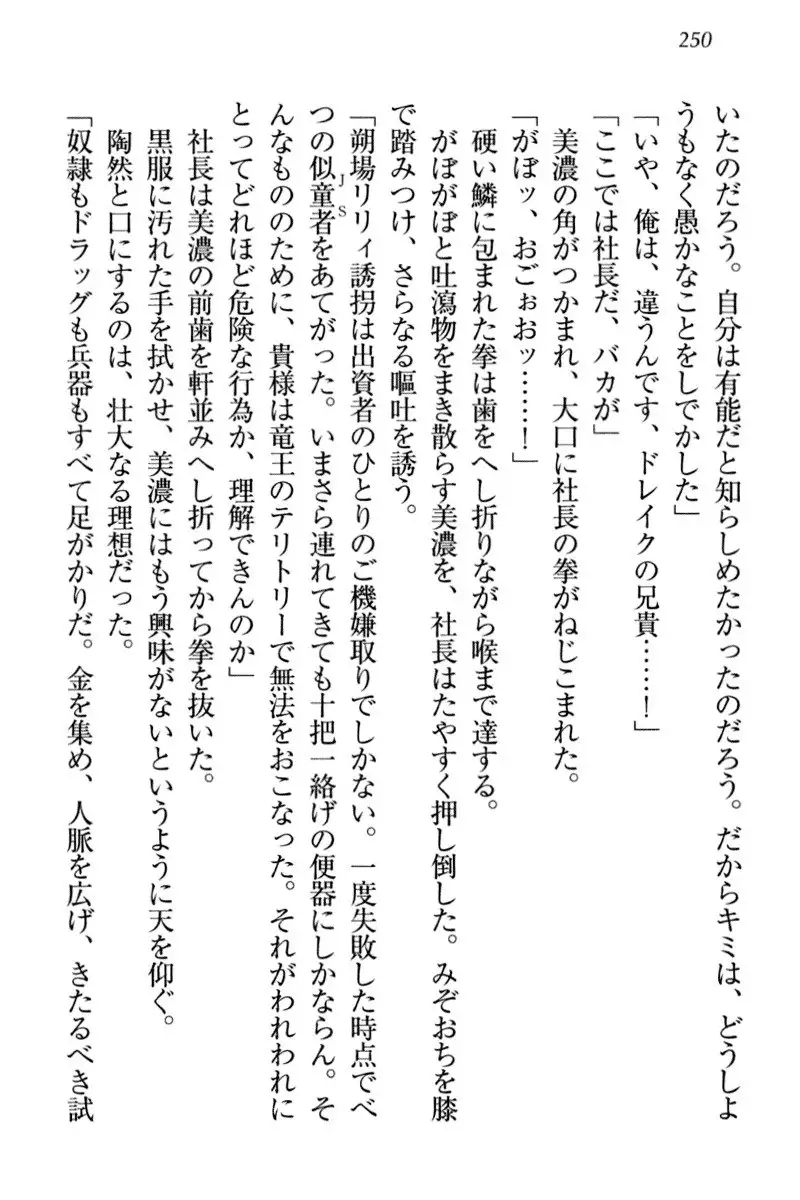 250
いたのだろう。自分は有能だと知らしめたかったのだろう。だからキミは、どうしよ
うもなく愚かなことをしでかした」
「いや、俺は、違うんです、ドレイクの兄貴……！」
「ここでは社長だ、バカが」
美濃の角がつかまれ、大口に社長の拳がねじこまれた。
「がぼッ、おごぉおッ……！」
硬い鱗に包まれた拳は歯をへし折りながら喉まで達する。
がぼがぼと吐瀉物をまき散らす美濃を、社長はたやすく押し倒した。みぞおちを膝
で踏みつけ、さらなる嘔吐を誘う。
「朔場リリィ誘拐は出資者のひとりのご機嫌取りでしかない。一度失敗した時点でべ
つの似童者をあてがった。いまさら連れてきても十把一絡げの便器にしかならん。そ
JS
んなもののために、貴様は竜王のテリトリーで無法をおこなった。それがわれわれに
とってどれほど危険な行為か、理解できんのか」
社長は美濃の前歯を軒並みへし折ってから拳を抜いた。
黒服に汚れた手を拭かせ、美濃にはもう興味がないというように天を仰ぐ。
陶然と口にするのは、壮大なる理想だった。
「奴隷もドラッグも兵器もすべて足がかりだ。金を集め、人脈を広げ、きたるべき試